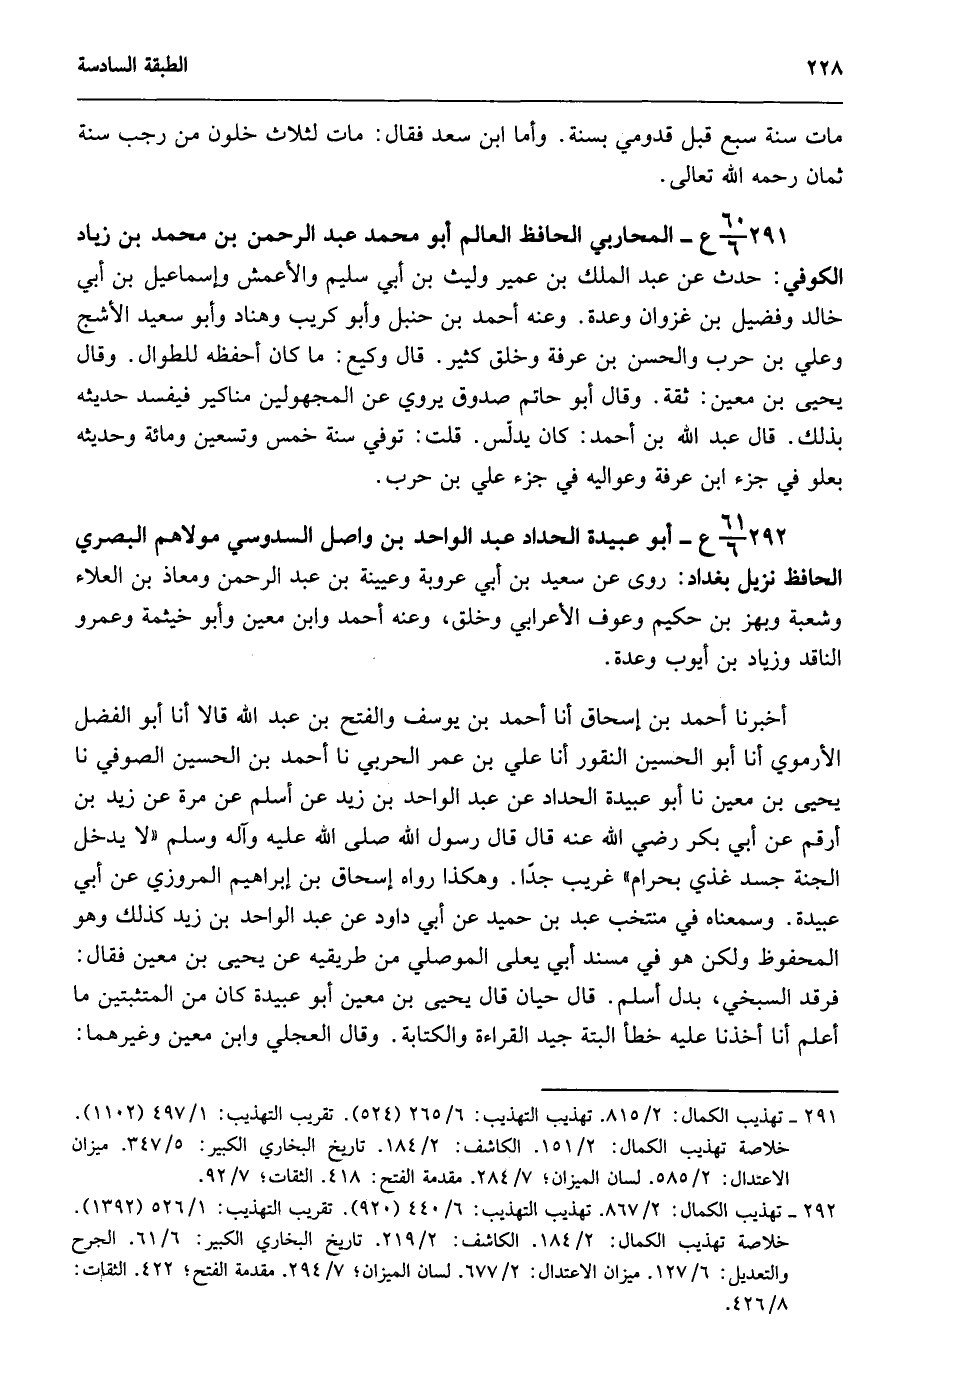 ٢٢٨ الطبقة السادسة
مات سنة سبع قبل قدومي بسنة. وأما ابن سعد فقال: مات لثلاث خلون من رجب سنة
ثمان رحمه الله تعالى.
٢٩١ ٦٠/٦ ع ـ المحاربي الحافظ العالم أبو محمد عبد الرحمن بن محمد بن زياد
الكوفي: حدث عن عبد الملك بن عمير وليث بن أبي سليم والأعمش وإسماعيل بن أبي
خالد وفضيل بن غزوان وعدة. وعنه أحمد بن حنبل وأبو كريب وهناد وأبو سعيد الأشج
وعلي بن حرب والحسن بن عرفة وخلق كثير. قال وكيع: ما كان أحفظه للطوال. وقال
يحيى بن معين: ثقة. وقال أبو حاتم صدوق يروي عن المجهولين مناكير فيفسد حديثه
بذلك. قال عبد الله بن أحمد: كان يدلّس. قلت: توفي سنة خمس وتسعين ومائة وحديثه
بعلو في جزء ابن عرفة وعواليه في جزء علي بن حرب.
٢٩٢ ٦١/٦ ع ـ أبو عبيدة الحداد عبد الواحد بن واصل السدوسي مولاهم البصري
الحافظ نزيل بغداد: روى عن سعيد بن أبي عروبة وعيينة بن عبد الرحمن ومعاذ بن العلاء
وشعبة وبهز بن حكيم وعوف الأعرابي وخلق، وعنه أحمد وابن معين وأبو خيثمة وعمرو
الناقد وزياد بن أيوب وعدة.
أخبرنا أحمد بن إسحاق أنا أحمد بن يوسف والفتح بن عبد الله قالا أنا أبو الفضل
الأرموي أنا أبو الحسين النقور أنا علي بن عمر الحربي نا أحمد بن الحسين الصوفي نا
يحيى بن معين نا أبو عبيدة الحداد عن عبد الواحد بن زيد عن أسلم عن مرة عن زيد بن
أرقم عن أبي بكر رضي الله عنه قال قال رسول الله صلى الله عليه وآله وسلم «لا يدخل
الجنة جسد غذي بحرام» غريب جدًا. وهكذا رواه إسحاق بن إبراهيم المروزي عن أبي
عبيدة. وسمعناه في منتخب عبد بن حميد عن أبي داود عن عبد الواحد بن زيد كذلك وهو
المحفوظ ولكن هو في مسند أبي يعلى الموصلي من طريقيه عن يحيى بن معين فقال:
فرقد السبخي، بدل أسلم. قال حيان قال يحيى بن معين أبو عبيدة كان من المتثبتين ما
أعلم أنا أخذنا عليه خطأ البتة جيد القراءة والكتابة. وقال العجلي وابن معين وغيرهما:
٢٩١ ـ تهذيب الكمال: ٨١٥/٢. تهذيب التهذيب: ٢٦٥/٦ (٥٢٤). تقريب التهذيب: ٤٩٧/١ (١١٠٢).
خلاصة تهذيب الكمال: ١٥١/٢. الكاشف: ١٨٤/٢. تاريخ البخاري الكبير: ٣٤٧/٥. ميزان
الاعتدال: ٥٨٥/٢. لسان الميزان؛ ٢٨٤/٧. مقدمة الفتح: ٤١٨. الثقات؛ ٩٢/٧.
٢٩٢ ـ تهذيب الكمال: ٨٦٧/٢. تهذيب التهذيب: ٤٤٠/٦ (٩٢٠). تقريب التهذيب: ٥٢٦/١ (١٣٩٢).
خلاصة تهذيب الكمال: ١٨٤/٢. الكاشف: ٢١٩/٢. تاريخ البخاري الكبير: ٦١/٦. الجرح
والتعديل: ١٢٧/٦. ميزان الاعتدال: ٦٧٧/٢. لسان الميزان؛ ٢٩٤/٧. مقدمة الفتح؛ ٤٢٢. الثقات:
٤٢٦/٨.